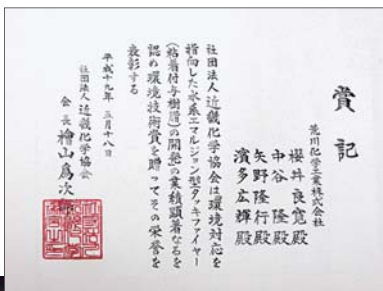 賞記
荒川化学工業株式会社
櫻井良寛殿
中谷隆殿
矢野隆行殿
濱多広輝殿
社団法人近畿化学協会は環境対応を
指向した水系エマルジョン型タッキファイヤー
(粘着付与樹脂)の開発の業績顕著なるを
認め環境技術賞を贈つてその栄誉を
表彰する
平成十九年五月十八日
社団法人近畿化学協会
会長檜山爲次郎